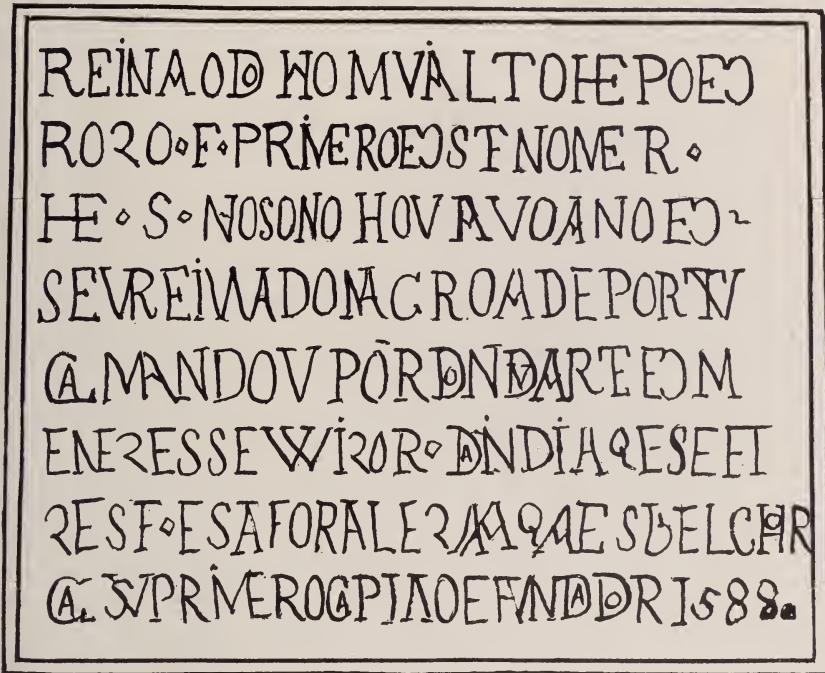 REINAODO HO MVI ALTO HE PODE
ROZO · F · PRIMERO DE STE NOME R ·
HE · S · NOSO NO HOVTAVO ANO DE
SEV REINADO NA CROA DE PORTV
GAL MANDOV POR DON DVARTE DE M
ENEZES SEV VIZOR · DA INDIA QE SE FE
ZESE · ESA FORALEZA
SV PRIMERO CAPITAO E FVNDADOR 1588.